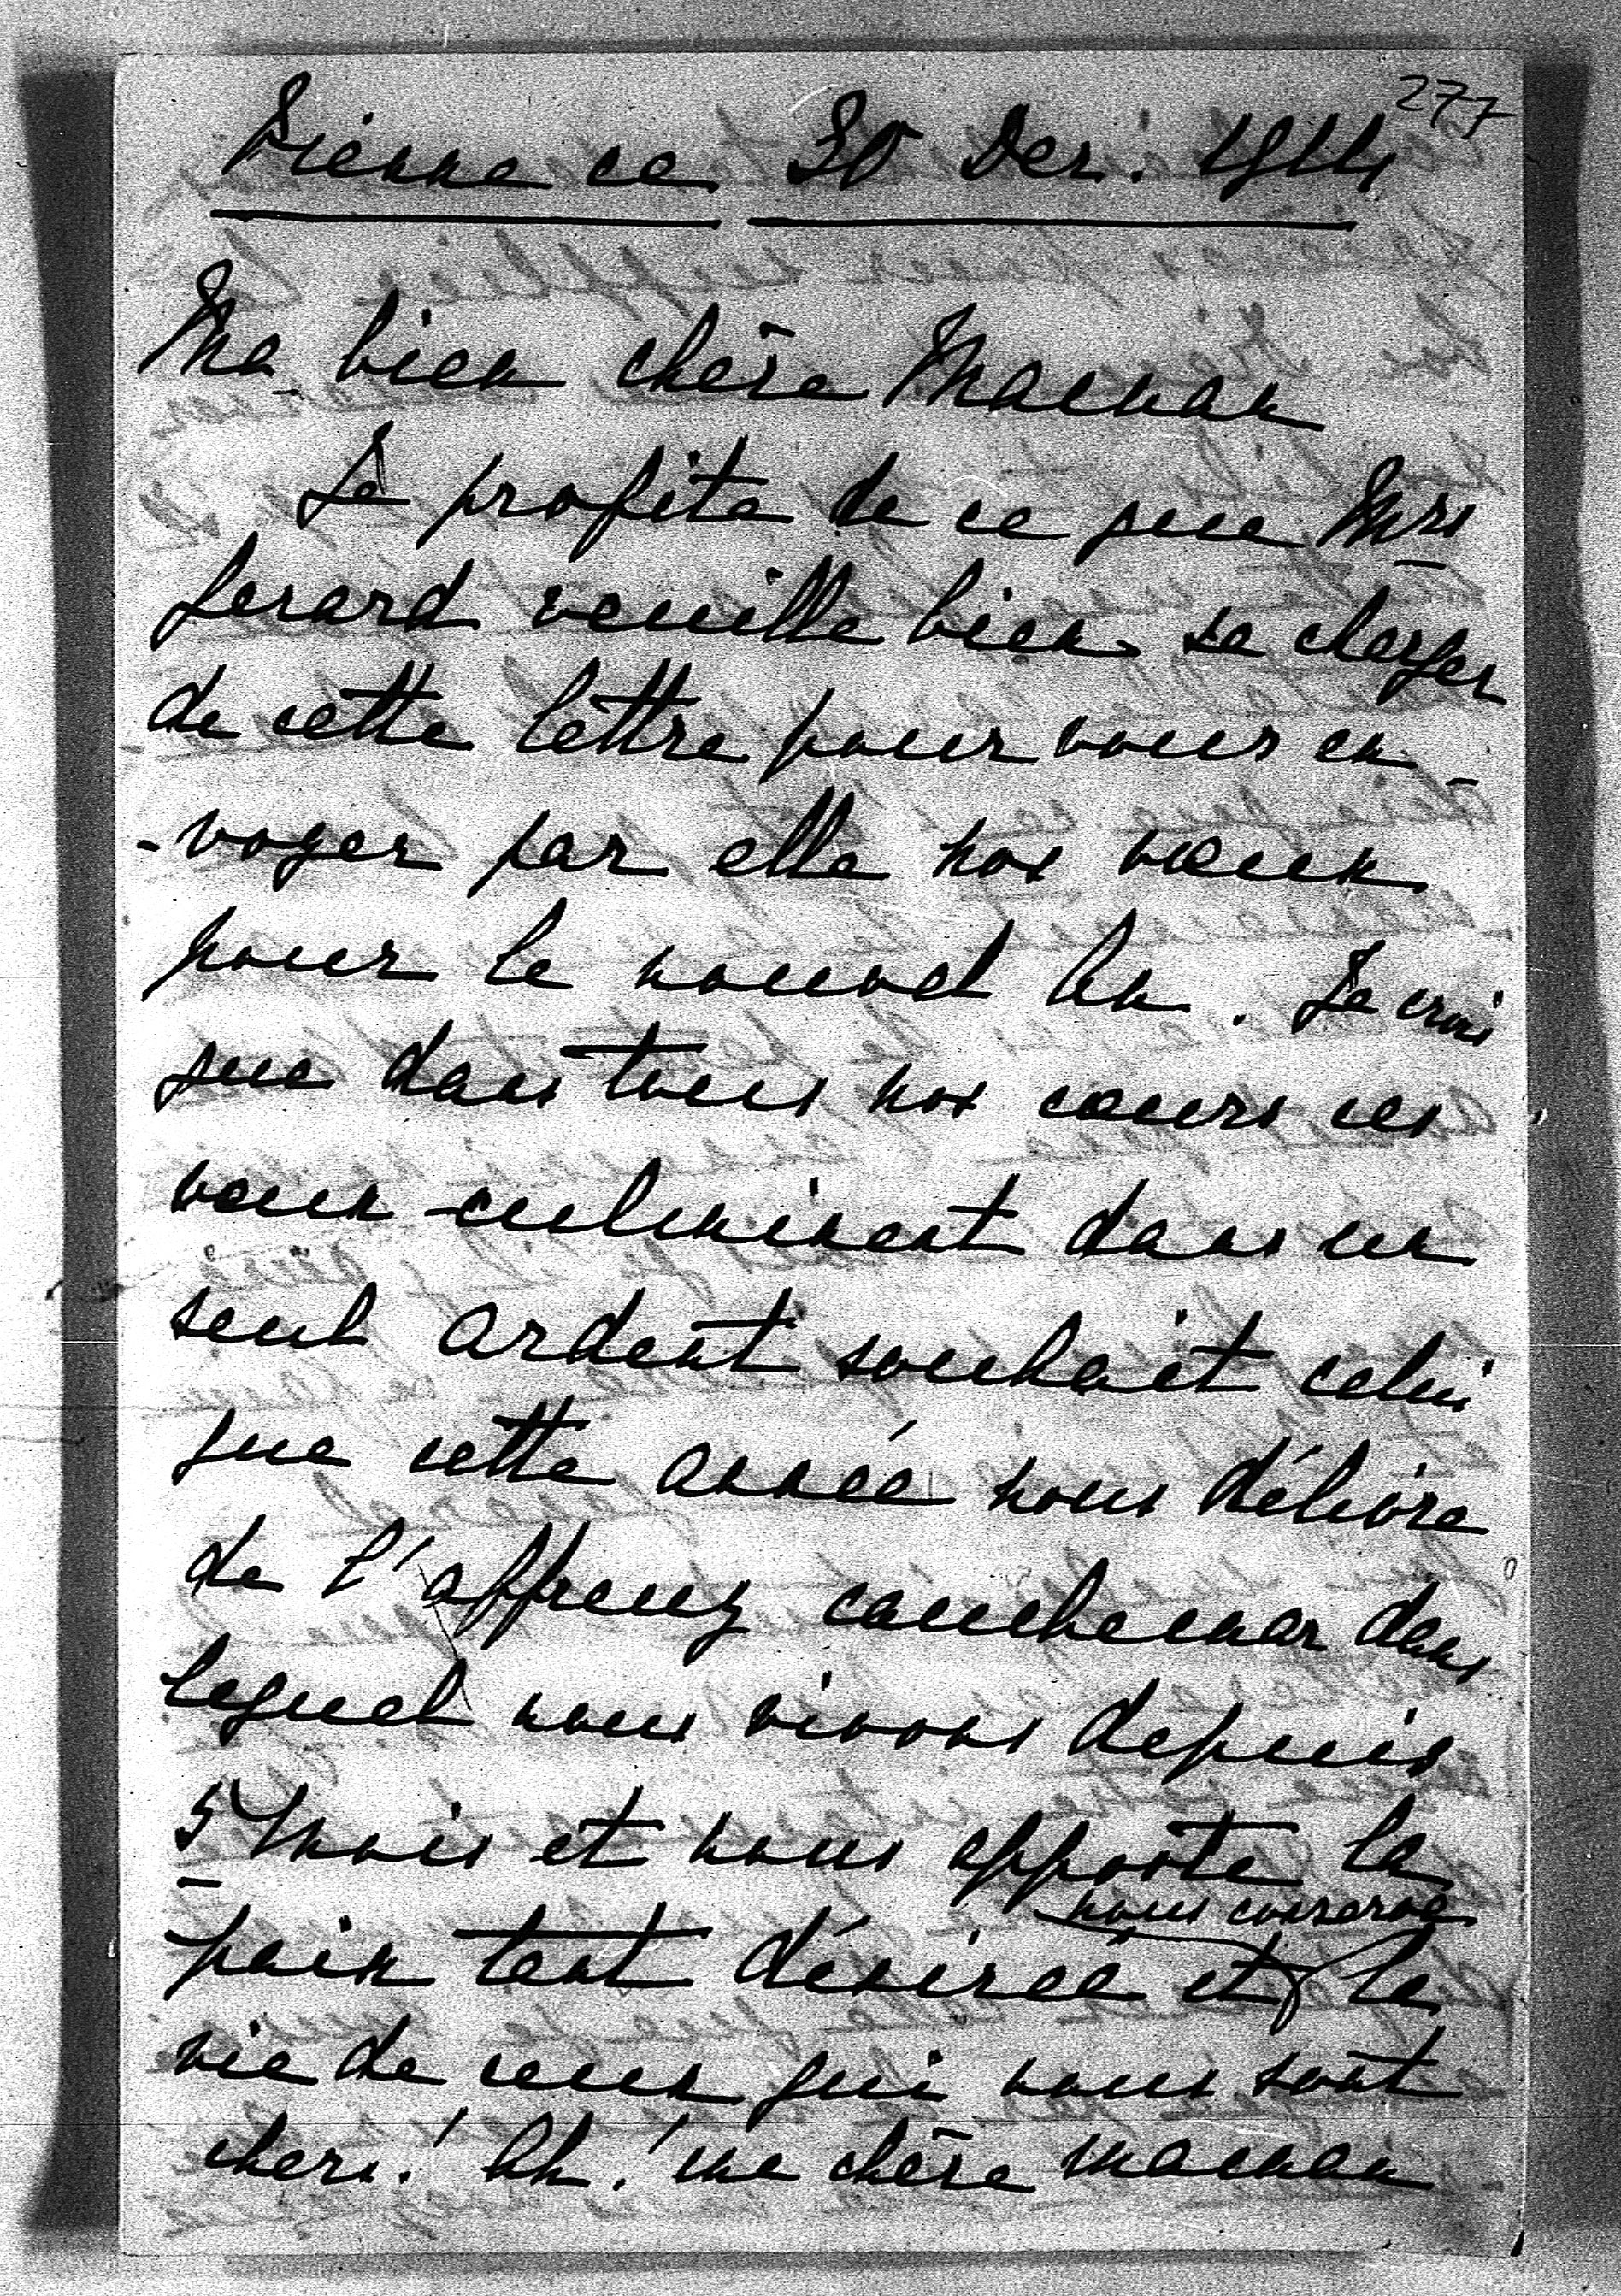 277
Vienne ce 30 Dec. 1914
Ma bien chère Maman
Je profite de ce que Mrs
Gerard veuille bien se charger
de cette lettre pour vous en-
-voyer par elle nos vœux
pour le nouvel An. Je crois
que dans tous nos cœurs ces
vœux culminent dans un
seul ardent souhait celui
que cette année nous délivre
de l'affreux cauchemar dans
lequel nous vivons depuis
5 mois et nous apporte la
nous conserve
paix tant désirée et la
vie de ceux qui nous sont
chers! Ah! ma chère maman